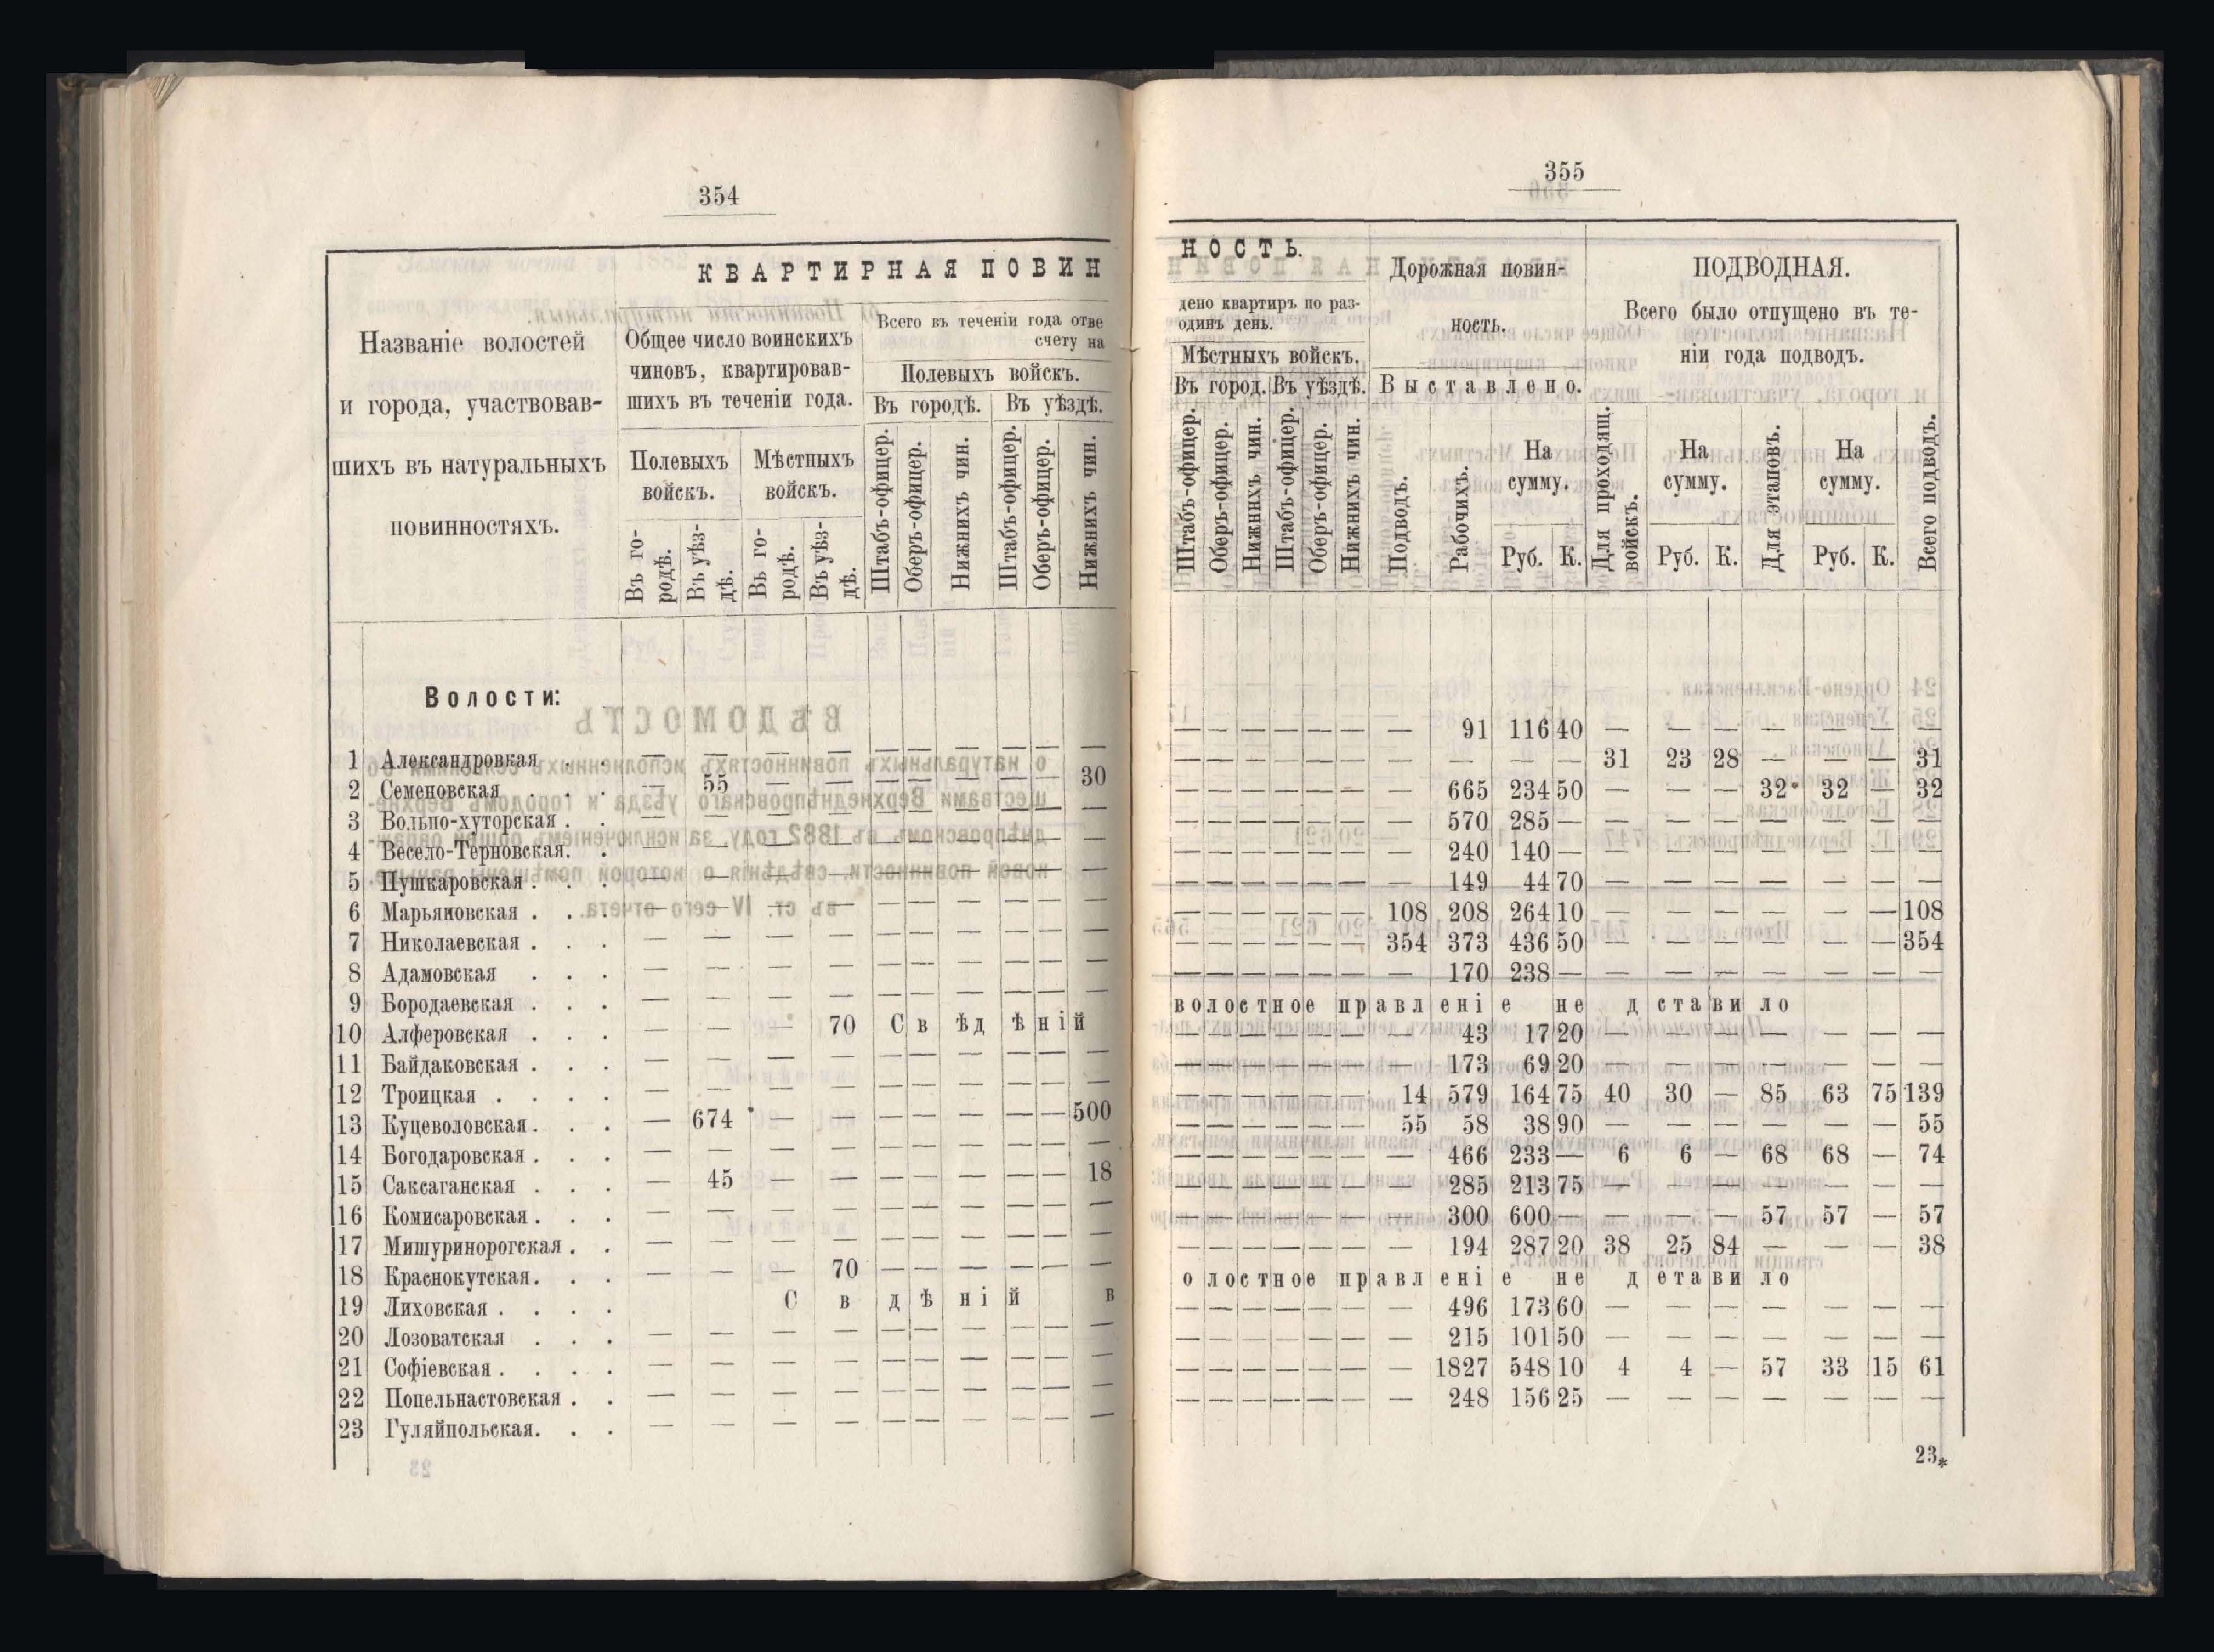 354
КВАРТИРНАЯ ПОВИН
Названіе волостей
и города, участвовав-
шихъ въ натуральныхъ
повинностяхъ.
Общее число воинскихъ
чиновъ, квартировав-
шихъ въ теченіи года.
Всего въ теченіи года отве
счету на
Полевыхъ войскъ.
Въ городѣ. Въ уѣздѣ.
Полевыхъ войскъ.
Мѣстныхъ войскъ.
Въ го-родѣ. Въ уѣз-дѣ. Въ го-родѣ. Въ уѣз-дѣ. Штабъ-офицер. Оберъ-офицер. Нижнихъ чин. Штабъ-офицер. Оберъ-офицер. Нижнихъ чин.
Волости:
1 Александровкая . . — — — — — — — — — —
2 Семеновская . . . — 55 — — — — — — — 30
3 Вольно-хуторская . . — — — — — — — — — —
4 Весело-Терновская. . — — — — — — — — — —
5 Пушкаровская . . . — — — — — — — — — —
6 Марьяновская . . . — — — — — — — — — —
7 Николаевская . . . — — — — — — — — — —
8 Адамовская . . . — — — — — — — — — —
9 Бородаевская . . . — — — — — — — — — —
10 Алферовская . . . — — — 70 Свѣдѣній
11 Байдаковская . . . — — — — — — — — — —
12 Троицкая . . . . — — — — — — — — — —
13 Куцеволовская . . . — 674 — — — — — — — 500
14 Богодаровская . . . — — — — — — — — — —
15 Саксаганская . . . — 45 — — — — — — — 18
16 Комисаровская . . . — — — — — — — — — —
17 Мишуринорогская . . — — — — — — — — — —
18 Краснокутская. . . — — — 70 — — — — — —
19 Лиховская . . . . С в дѣній в
20 Лозоватская . . . — — — — — — — — — —
21 Софіевская . . . . — — — — — — — — — —
22 Попельнастовская . . — — — — — — — — — —
23 Гуляйпольская. . . — — — — — — — — — —
355
НОСТЬ.
дено квартиръ по раз-
одинъ день.
Мѣстныхъ войскъ.
Въ город. Въ уѣздѣ.
Дорожная повин-
ность.
Выставлено.
ПОДВОДНАЯ.
Всего было отпущено въ те-
ніи года подводъ.
Штабъ-офицер. Оберъ-офицер. Нижнихъ чин. Штабъ-офицер. Оберъ-офицер. Нижнихъ чин. Подводъ. Рабочихъ. На сумму. Для проходящ. войскъ. На сумму. Для этаповъ. На сумму. Всего подводъ.
Руб. К. Руб. К. Руб. К.
— — — — — — — 91 116 40 — — — — — — —
— — — — — — — — — — 31 23 28 — — — 31
— — — — — — — 665 234 50 — — — 32 32 — 32
— — — — — — — 570 285 — — — — — — — —
— — — — — — — 240 140 — — — — — — — —
— — — — — — — 149 44 70 — — — — — — —
— — — — — — 108 208 264 10 — — — — — — 108
— — — — — — 354 373 436 50 — — — — — — 354
— — — — — — — 170 238 — — — — — — — —
волостное правленіе не д ставило
— — — — — — — 43 17 20 — — — — — — —
— — — — — — — 173 69 20 — — — — — — —
— — — — — — 14 579 164 75 40 30 — 85 63 75 139
— — — — — — 55 58 38 90 — — — — — — 55
— — — — — — — 466 233 — 6 6 — 68 68 — 74
— — — — — — — 285 213 75 — — — — — — —
— — — — — — — 300 600 — — — — 57 57 — 57
— — — — — — — 194 287 20 38 25 84 — — — 38
олостное правленіе не д етавило
— — — — — — — 496 173 60 — — — — — — —
— — — — — — — 215 101 50 — — — — — — —
— — — — — — — 1827 548 10 4 4 — 57 33 15 61
— — — — — — — 248 156 25 — — — — — — —
23*